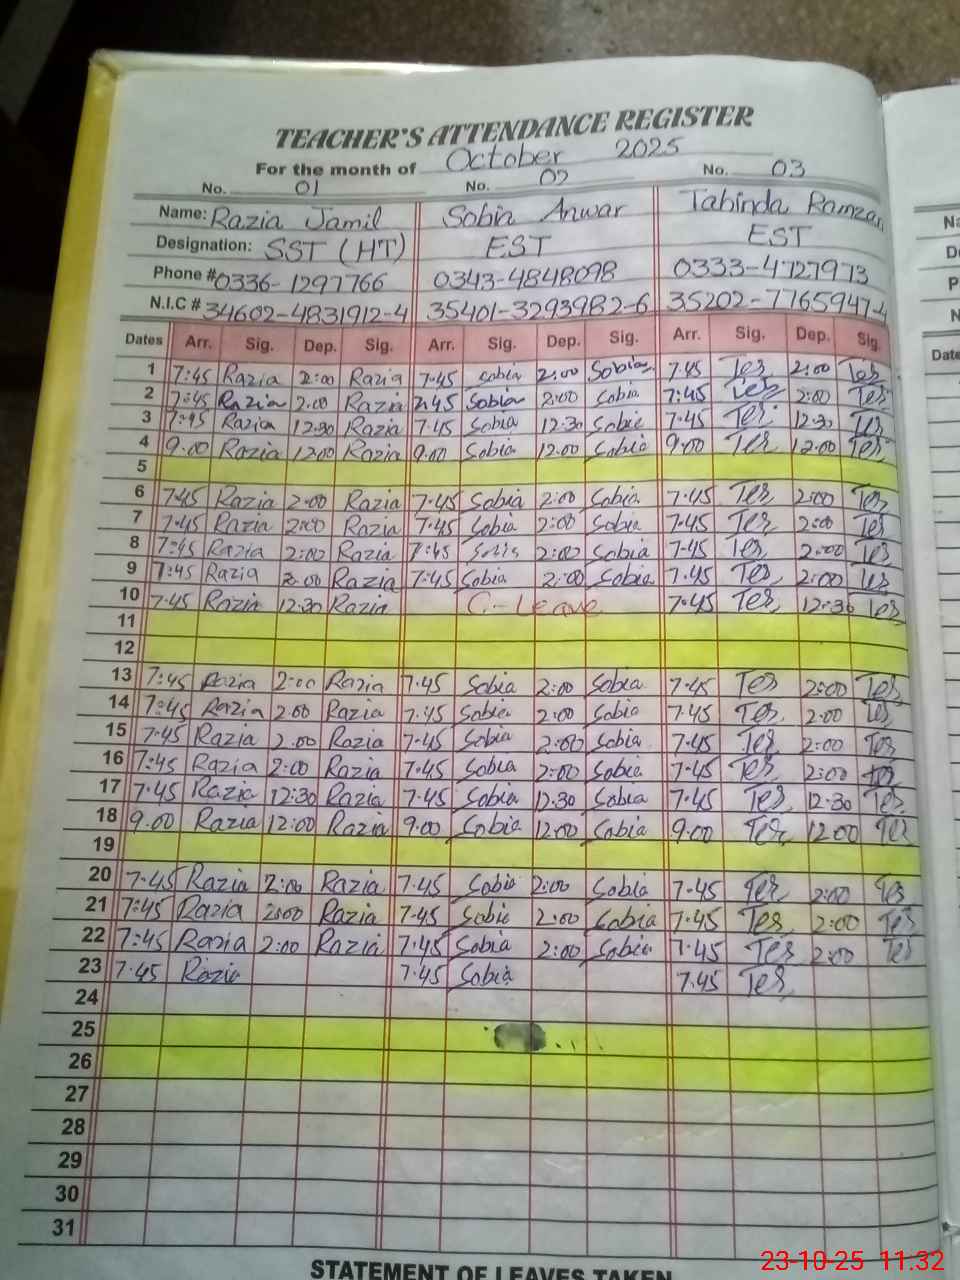 TEACHER'S ATTENDANCE REGISTER
For the month of October 2025
No. 01 No. 02 No. 03
Name: Razia Jamil Sobia Anwar Tabinda Ramzan
Designation: SST (HT) EST EST
Phone # 0336-1297766 0343-4848098 0333-4727973
N.I.C # 34602-4831912-4 35401-3293982-6 35202-7765947-4
Dates Arr. Sig. Dep. Sig. Arr. Sig. Dep. Sig. Arr. Sig. Dep. Sig.
1 7:45 Razia 2:00 Razia 7.45 Sobia 2:00 Sobia 7.45 Tes 2:00 Tes
2 7:45 Razia 2.00 Razia 7.45 Sobia 2:00 Sobia 7:45 Tes 2:00 Tes
3 7:45 Razia 12:30 Razia 7.45 Sobia 12:30 Sobia 7.45 Tes 12:30 Tes
4 9.00 Razia 12:00 Razia 9.00 Sobia 12.00 Sobia 9:00 Tes 12.00 Tes
5
6 7:45 Razia 2:00 Razia 7.45 Sobia 2:00 Sobia 7.45 Tes 2:00 Tes
7 7.45 Razia 2:00 Razia 7.45 Sobia 2:00 Sobia 7.45 Tes 2:00 Tes
8 7:45 Razia 2:00 Razia 7:45 Sobia 2:00 Sobia 7.45 Tes 2:00 Tes
9 7:45 Razia 2:00 Razia 7:45 Sobia 2:00 Sobia 7.45 Tes 2:00 Tes
10 7.45 Razia 12:30 Razia C-Leave 7.45 Tes 12:30 Tes
11
12
13 7:45 Razia 2:00 Razia 7.45 Sobia 2:00 Sobia 7.45 Tes 2:00 Tes
14 7:45 Razia 2:00 Razia 7.45 Sobia 2:00 Sobia 7.45 Tes 2:00 Tes
15 7.45 Razia 2.00 Razia 7.45 Sobia 2:00 Sobia 7.45 Tes 2:00 Tes
16 7:45 Razia 2:00 Razia 7.45 Sobia 2:00 Sobia 7.45 Tes 2:00 Tes
17 7.45 Razia 12:30 Razia 7.45 Sobia 12.30 Sobia 7.45 Tes 12.30 Tes
18 9.00 Razia 12:00 Razia 9.00 Sobia 12:00 Sobia 9.00 Tes 12:00 Tes
19
20 7.45 Razia 2:00 Razia 7.45 Sobia 2:00 Sobia 7.45 Tes 2:00 Tes
21 7:45 Razia 2:00 Razia 7.45 Sobia 2:00 Sobia 7.45 Tes 2:00 Tes
22 7:45 Razia 2:00 Razia 7.45 Sobia 2:00 Sobia 7.45 Tes 2:00 Tes
23 7.45 Razia 7.45 Sobia 7.45 Tes
24
25
26
27
28
29
30
31
STATEMENT OF LEAVES TAKEN
23-10-25 11:32